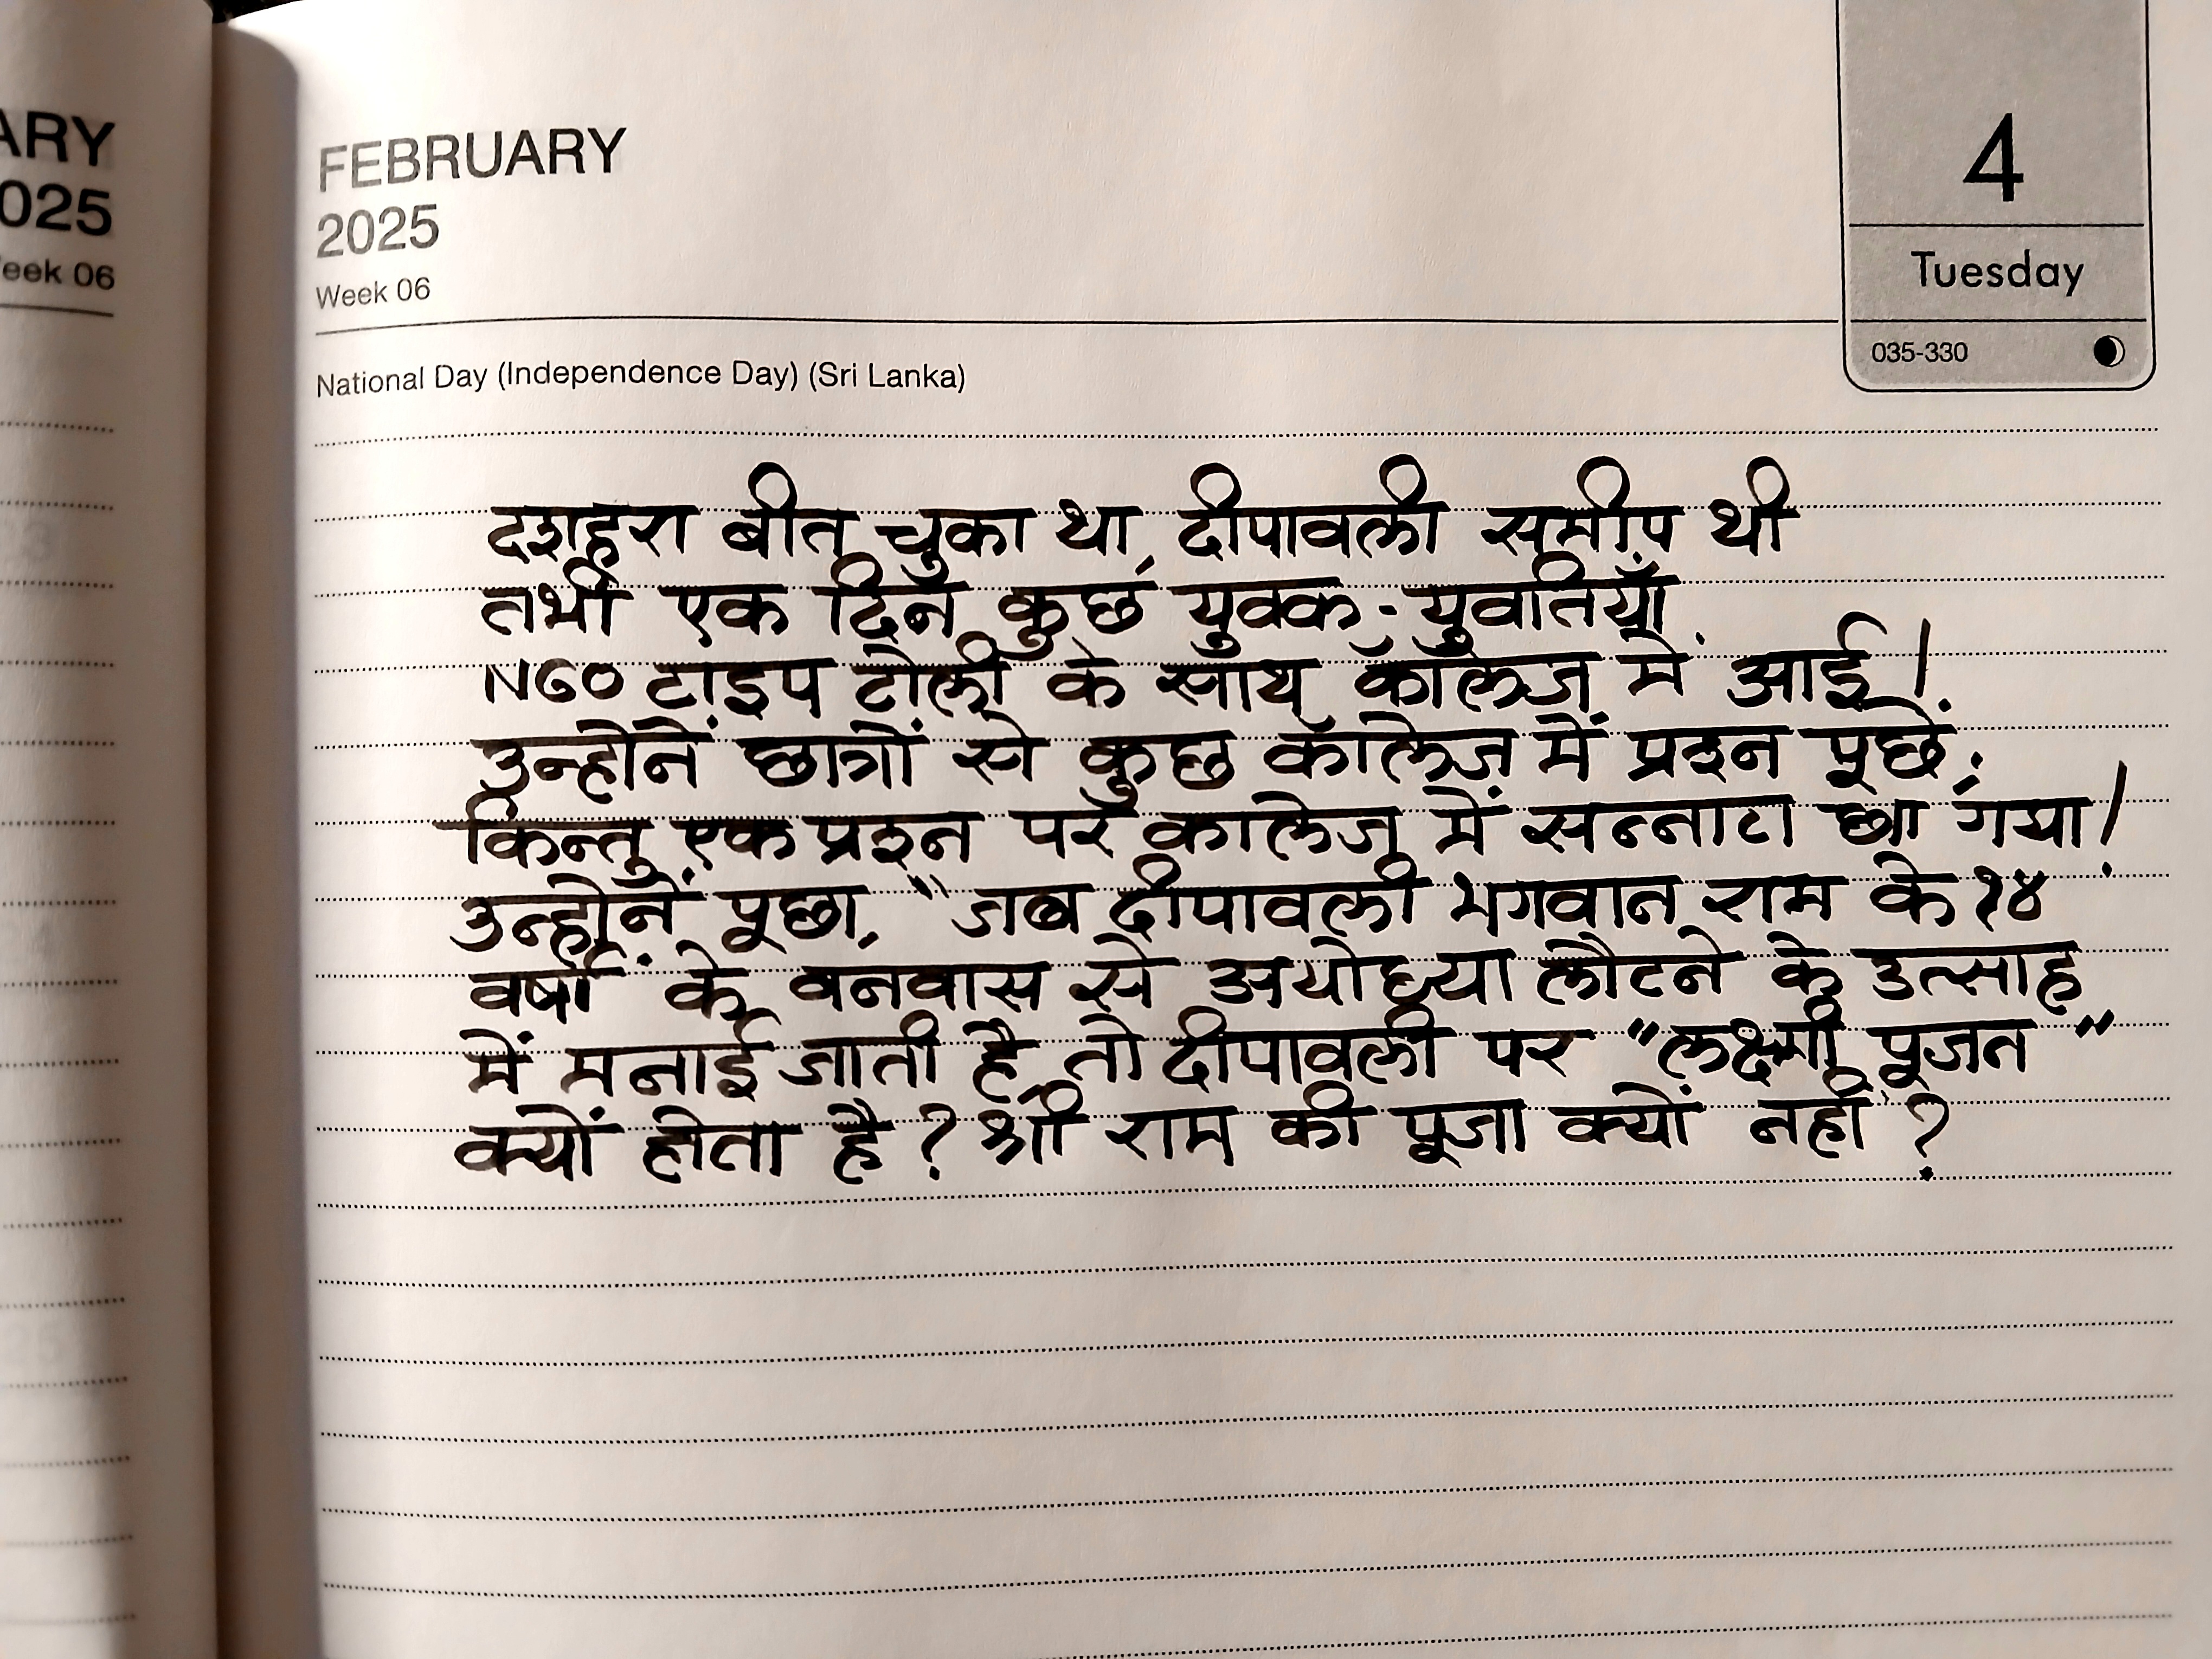 ARY
025
eek 06
FEBRUARY
2025
Week 06
4
Tuesday
035-330
National Day (Independence Day) (Sri Lanka)
दशहरा बीत चुका था, दीपावली समीप थी
तभी एक दिन कुछ युवक-युवतियाँ
NGO टाइप टोली के साथ कॉलेज में आई।
उन्होंने छात्रों से कुछ कॉलेज में प्रश्न पूछें;
किन्तु एक प्रश्न पर कालेज में सन्नाटा छा गया!
उन्होंने पूछा, "जब दीपावली भगवान राम के १४
वर्षों के वनवास से अयोध्या लौटने के उत्साह
में मनाई जाती है, तो दीपावली पर "लक्ष्मी पूजन"
क्यों होता है? श्री राम की पूजा क्यों नहीं?